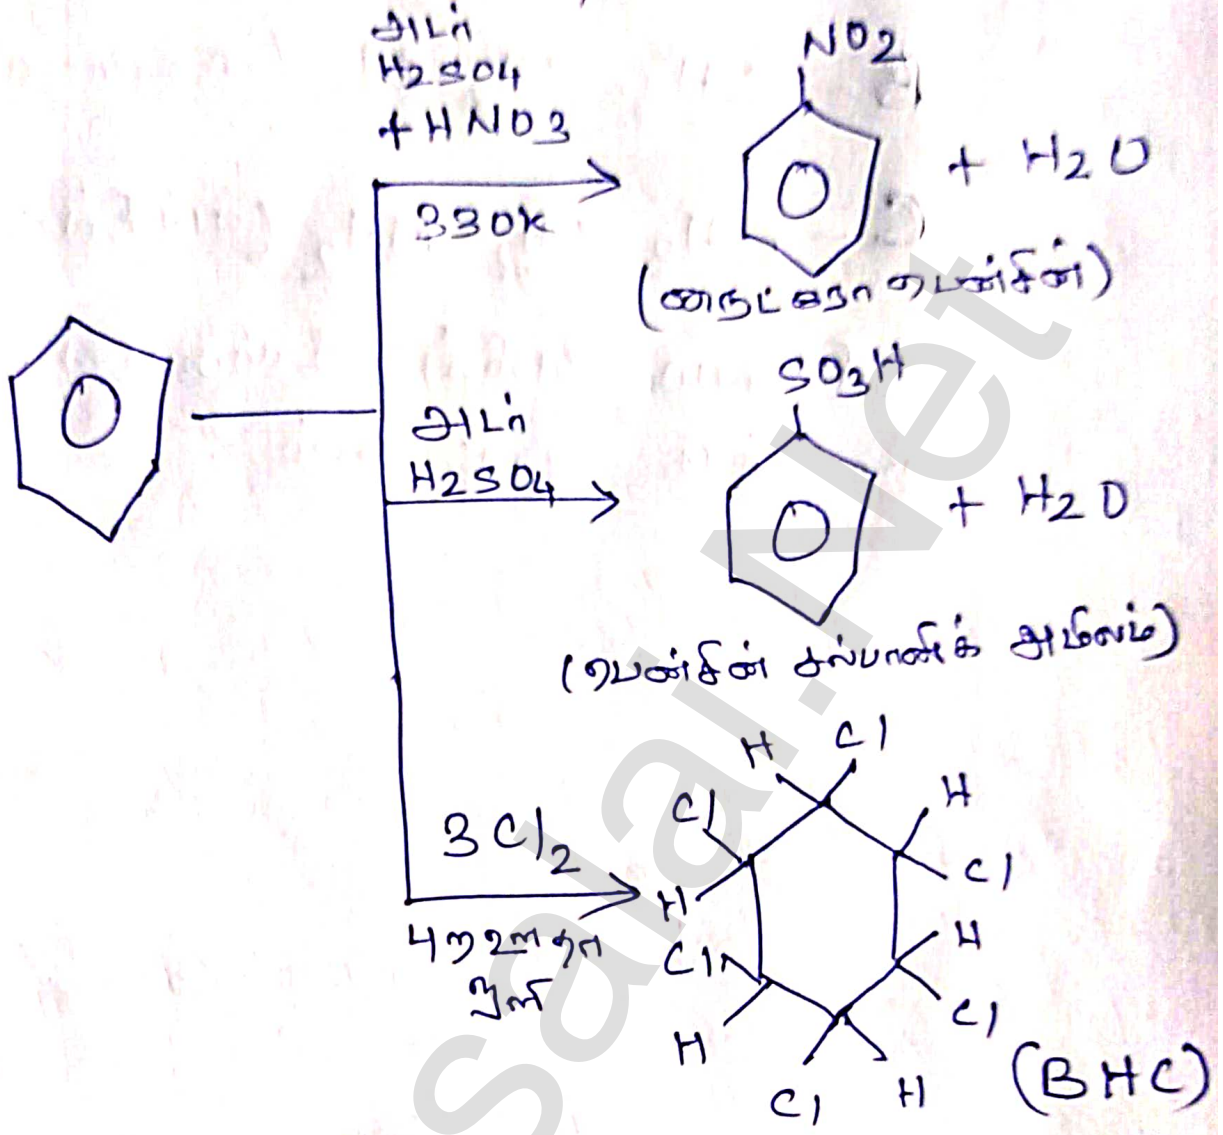 அடர்
H2SO4
+ HNO3
330K
NO2
+ H2O
(நைட்ரோ பென்சீன்)
அடர்
H2SO4
SO3H
+ H2O
(பென்சீன் சல்பானிக் அமிலம்)
3Cl2
புறஊதா
ஒளி
H Cl
Cl H
H Cl
Cl H
H Cl
Cl H
(BHC)
salai.Net